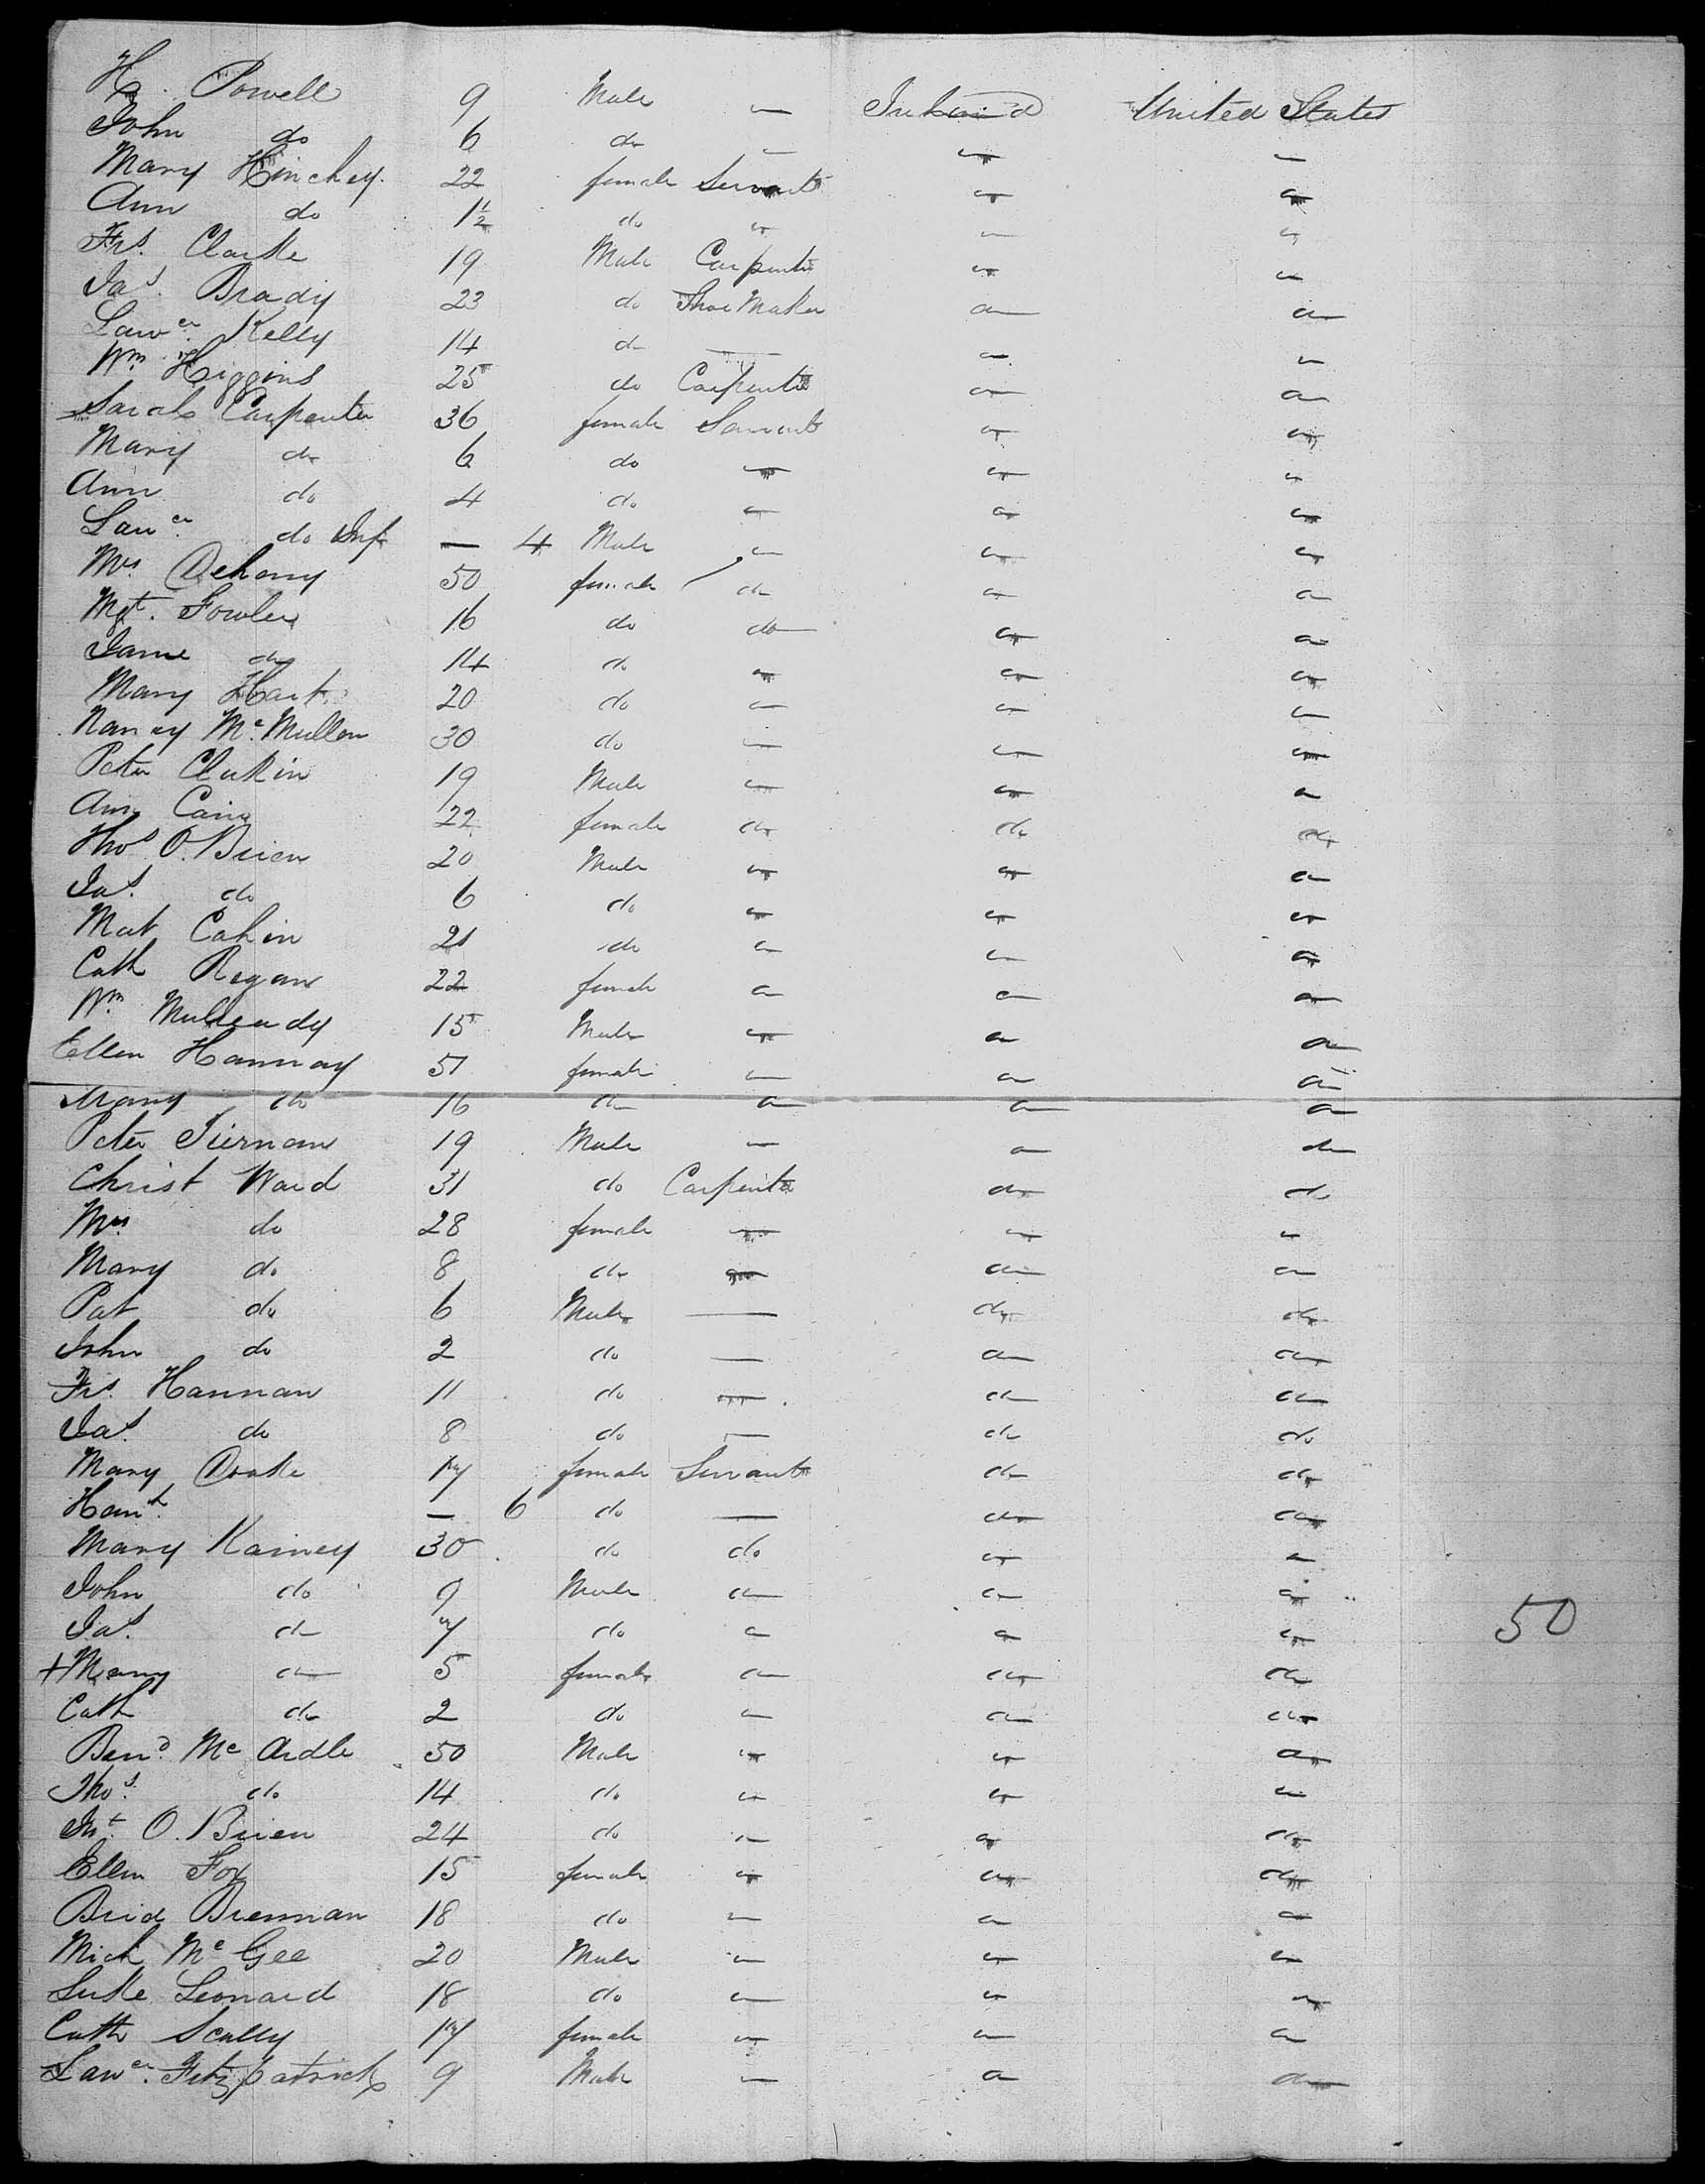 H. Powell 9 Male — Ireland United States
John do 6 do — — —
Mary Hinchey 22 female Servant — —
Ann do 1½ do — — —
Frs. Clarke 19 Male Carpenter — —
Jas. Brady 23 do Shoe Maker — —
Lawce. Kelly 14 do — — —
Wm. Higgins 25 do Carpenter — —
Sarah Carpenter 36 female Servant — —
Mary do 6 do — — —
Ann do 4 do — — —
Lawce. do Inf — 4 Male — — —
Mrs. Dehany 50 female do — —
Mgt. Fowler 16 do do — —
Jane do 14 do — — —
Mary Hart 20 do — — —
Nancy Mc. Mullen 30 do — — —
Peter Clarkin 19 Male — — —
Ann Cain 22 female do do do
Thos. O. Brien 20 Male — — —
Jas. do 6 do — — —
Mat Cahin 21 do — — —
Cath Regan 22 female — — —
Wm. 15 Male — — —
Ellen Hannay 51 female — — —
Mary do 16 do — — —
Peter Tiernan 19 Male — — do
Christ Ward 31 do Carpenter do do
Mrs. do 28 female — — —
Mary do 8 do — — —
Pat do 6 Male — do do
John do 2 do — — —
Frs. Hannan 11 do — do do
Jas. do 8 do — do do
Mary 17 female Servant do do
Hant. — 6 do — do do
Mary Kainey 30 do do — —
John do 9 Male — — —
Jas. do 7 do — — — 50
+ Mary do 5 female — do do
Cath do 2 do — — do
Bend. Mc Ardle 50 Male — — —
Thos. do 14 do — — —
O. Brien 24 do — — do
Ellen Fox 15 female — — do
Brid Brennan 18 do — — —
Mich Mc Gee 20 Male — — —
Luke Leonard 18 do — — —
Cath Scally 17 female — — —
Lawce. Fitzpatrick 9 Male — — do